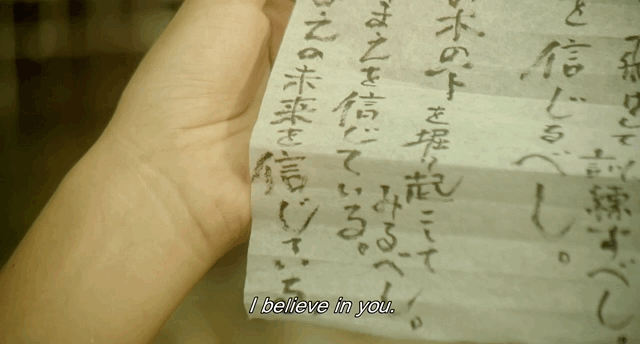 訓練すべし。
と信じるべし。
木の下を掘り起こして
みるべし。
まえを信じている。
えの未来を信じている
I believe in you.